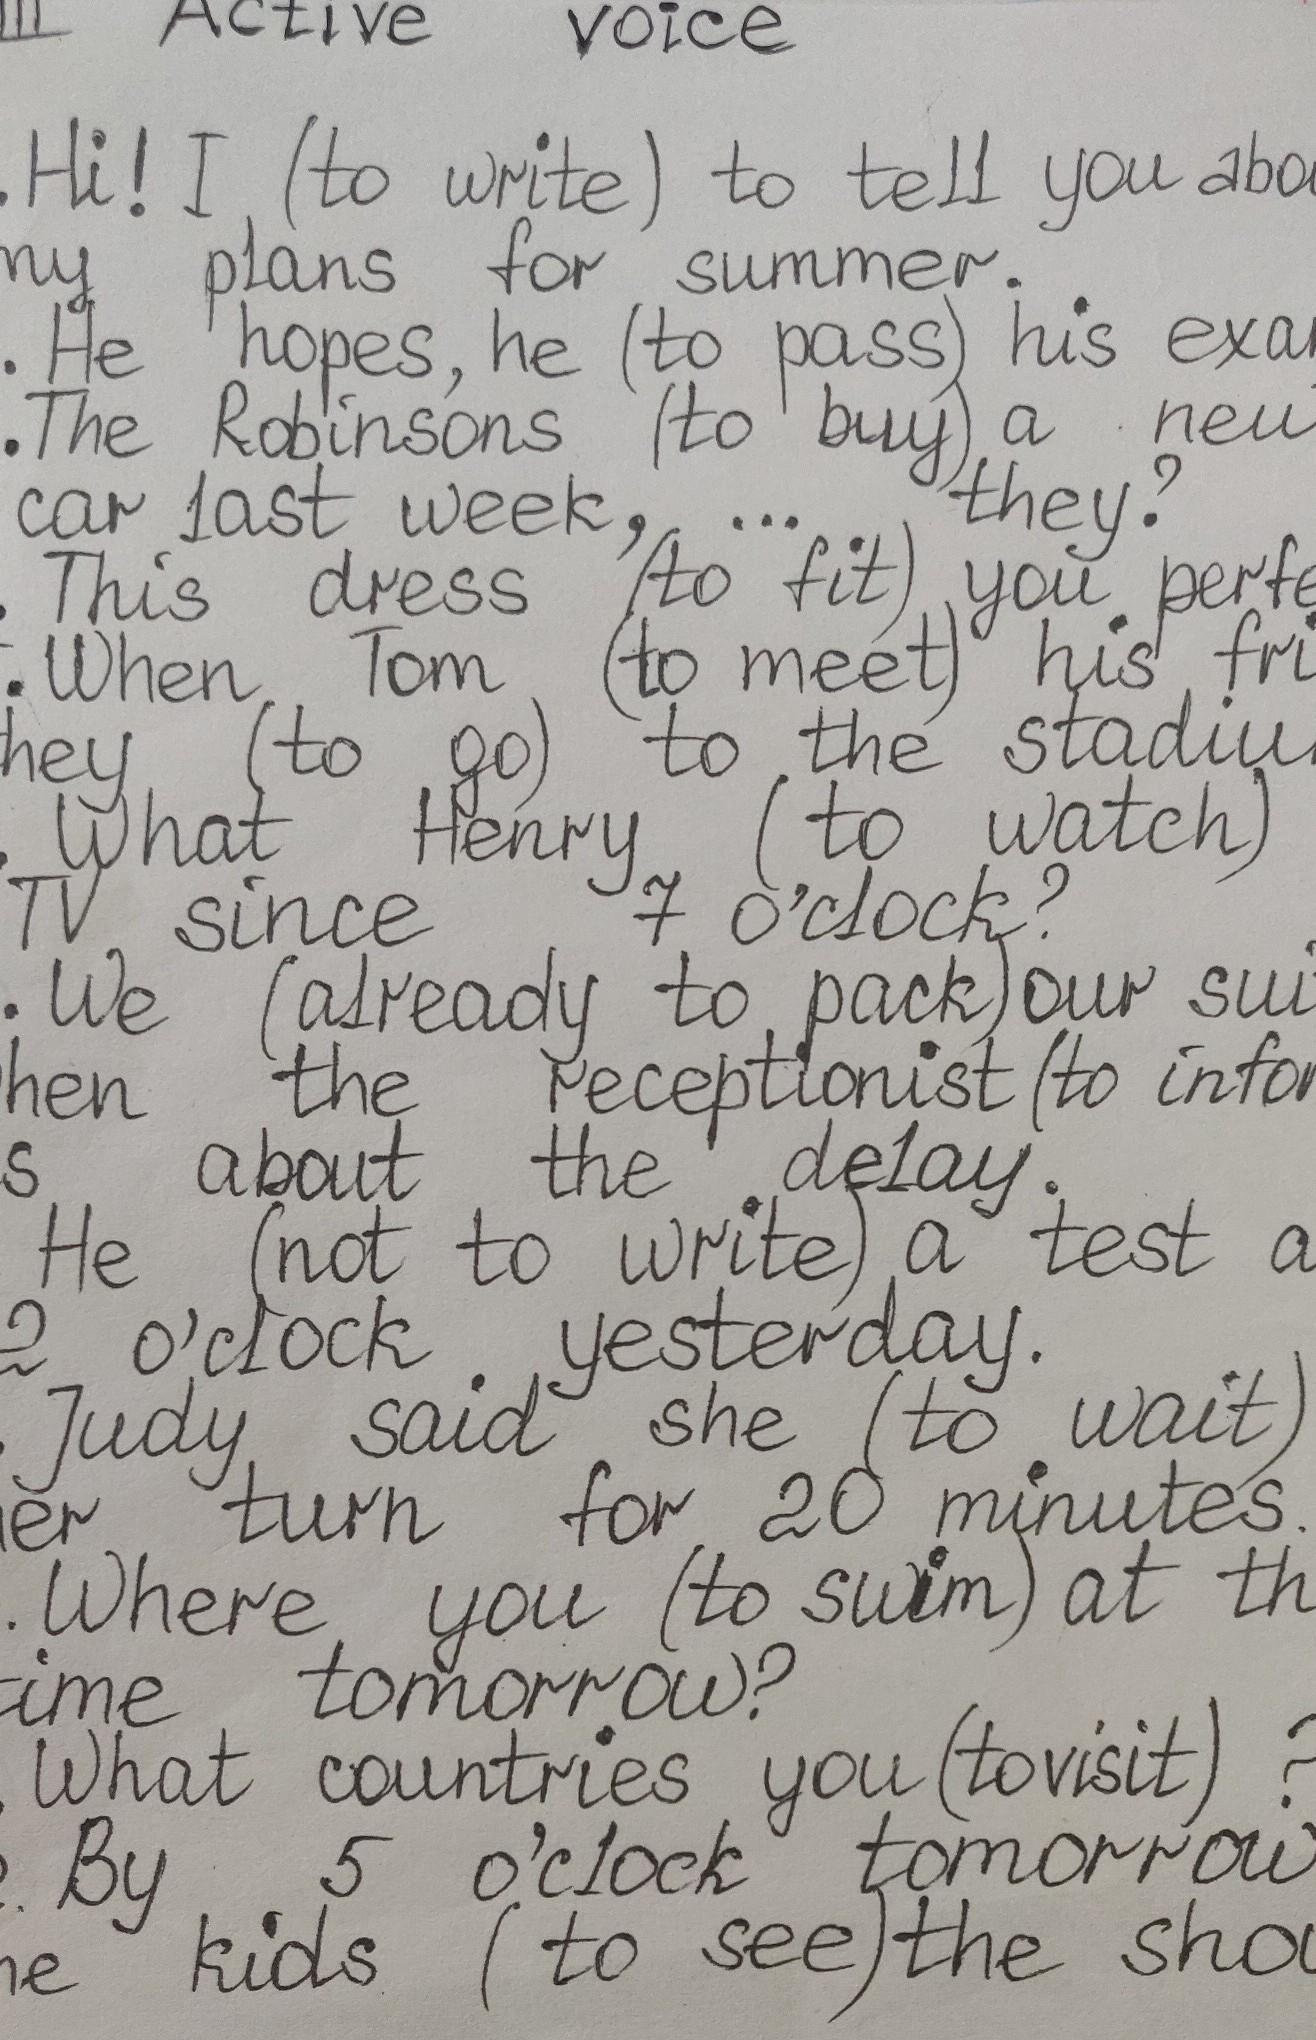 III Active voice
. Hi! I (to write) to tell you abo
my plans for summer.
. He hopes, he (to pass) his exa
. The Robinsons (to buy) a new
car last week, ... they?
. This dress (to fit) you perfe
. When Tom (to meet) his fri
hey (to go) to the stadiu
. What Henry (to watch)
TV since 7 o'clock?
. We (already to pack) our sui
hen the receptionist (to infor
s about the delay.
He (not to write) a test a
2 o'clock yesterday.
. Judy said she (to wait)
her turn for 20 minutes.
. Where you (to swim) at th
time tomorrow?
. What countries you (to visit) ?
. By 5 o'clock tomorrow
he kids (to see) the show